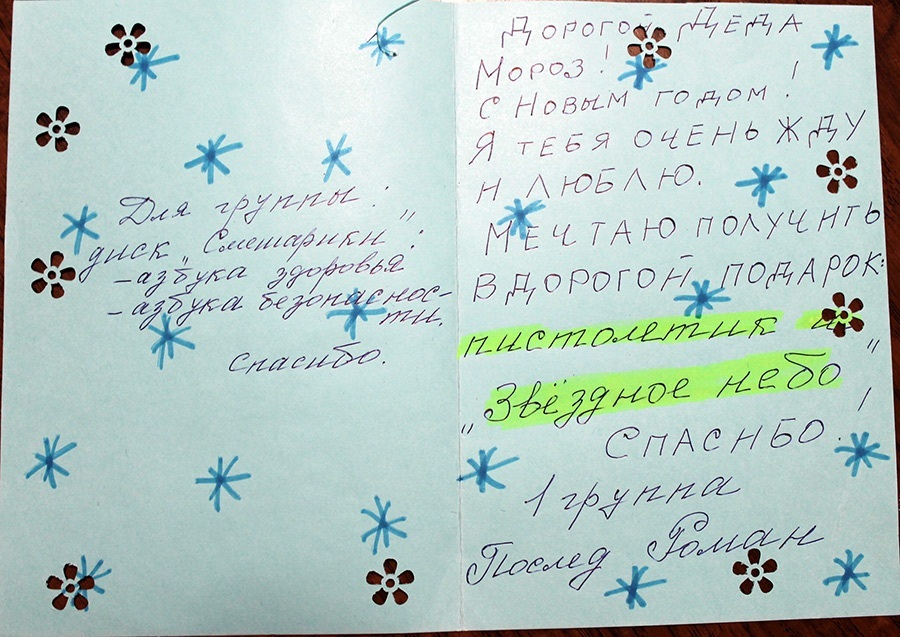 Для группы:
диск „Смешарики":
-азбука здоровья
-азбука безопаснос-
ти.
спасибо.
Дорогой Деда
Мороз!
С Новым годом!
Я тебя очень жду
и люблю.
Мечтаю получить
в дорогой подарок:
пистолетик и
„Звёздное небо"
Спасибо!
1 группа
Послед Роман